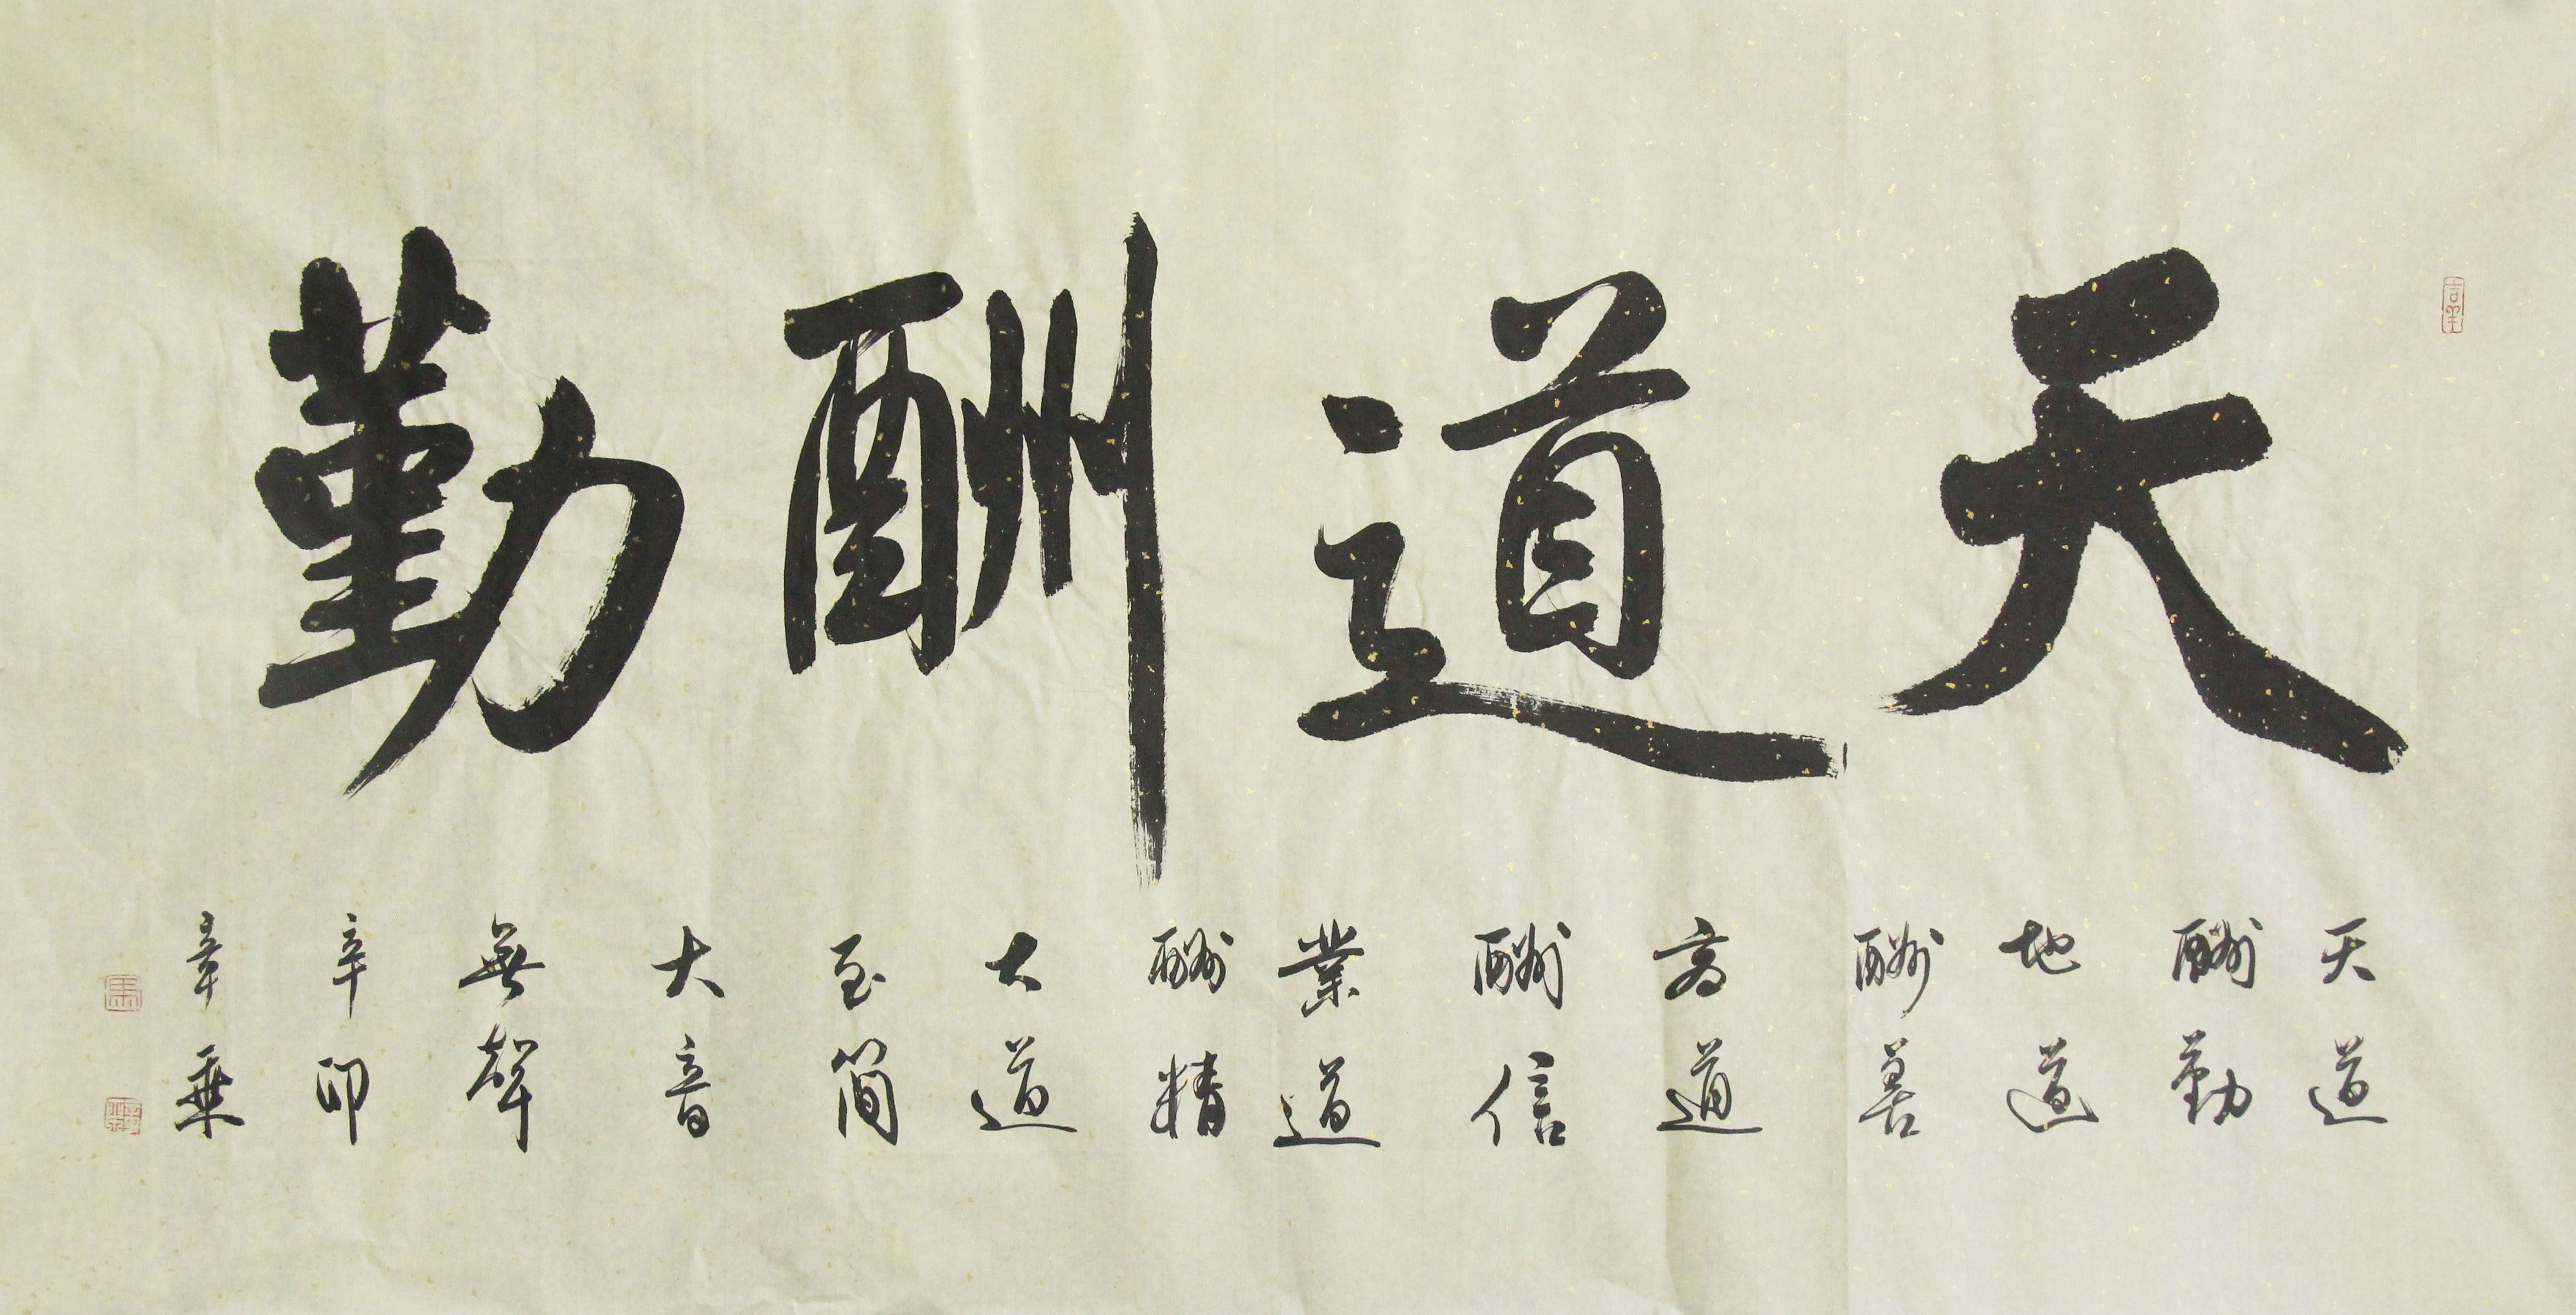 天道酬勤
天道
酬勤
地道
酬善
商道
酬信
業道
酬精
大道
至簡
大音
無聲
辛卯
章乘
吉羊
馬